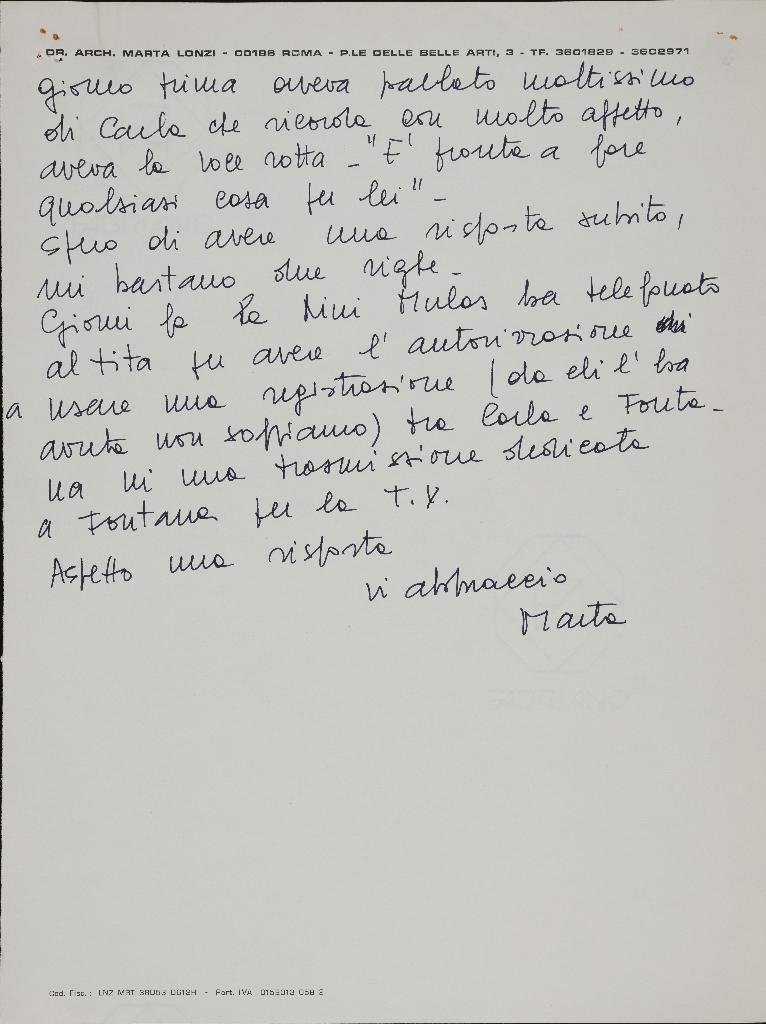 DR. ARCH. MARTA LONZI - 00196 ROMA - P.LE DELLE BELLE ARTI, 3 - TF. 3601829 - 3602971
giorno prima aveva parlato moltissimo
di Carla che ricorda con molto affetto,
aveva la voce rotta - "E' pronta a fare
qualsiasi cosa per lei" -
Spero di avere una risposta subito,
mi bastano due righe -
Giorni fa la Nini Mulas ha telefonato
al Tita per avere l'autorizzazione
a usare una registrazione (da chi l'ha
avuta non sappiamo) tra Carla e Fonta-
na in una trasmissione dedicata
a Fontana per la T.V.
Aspetto una risposta
Vi abbraccio
Marta
Cod. Fisc.: LNZ MRT 38D53 D612H - Part. IVA